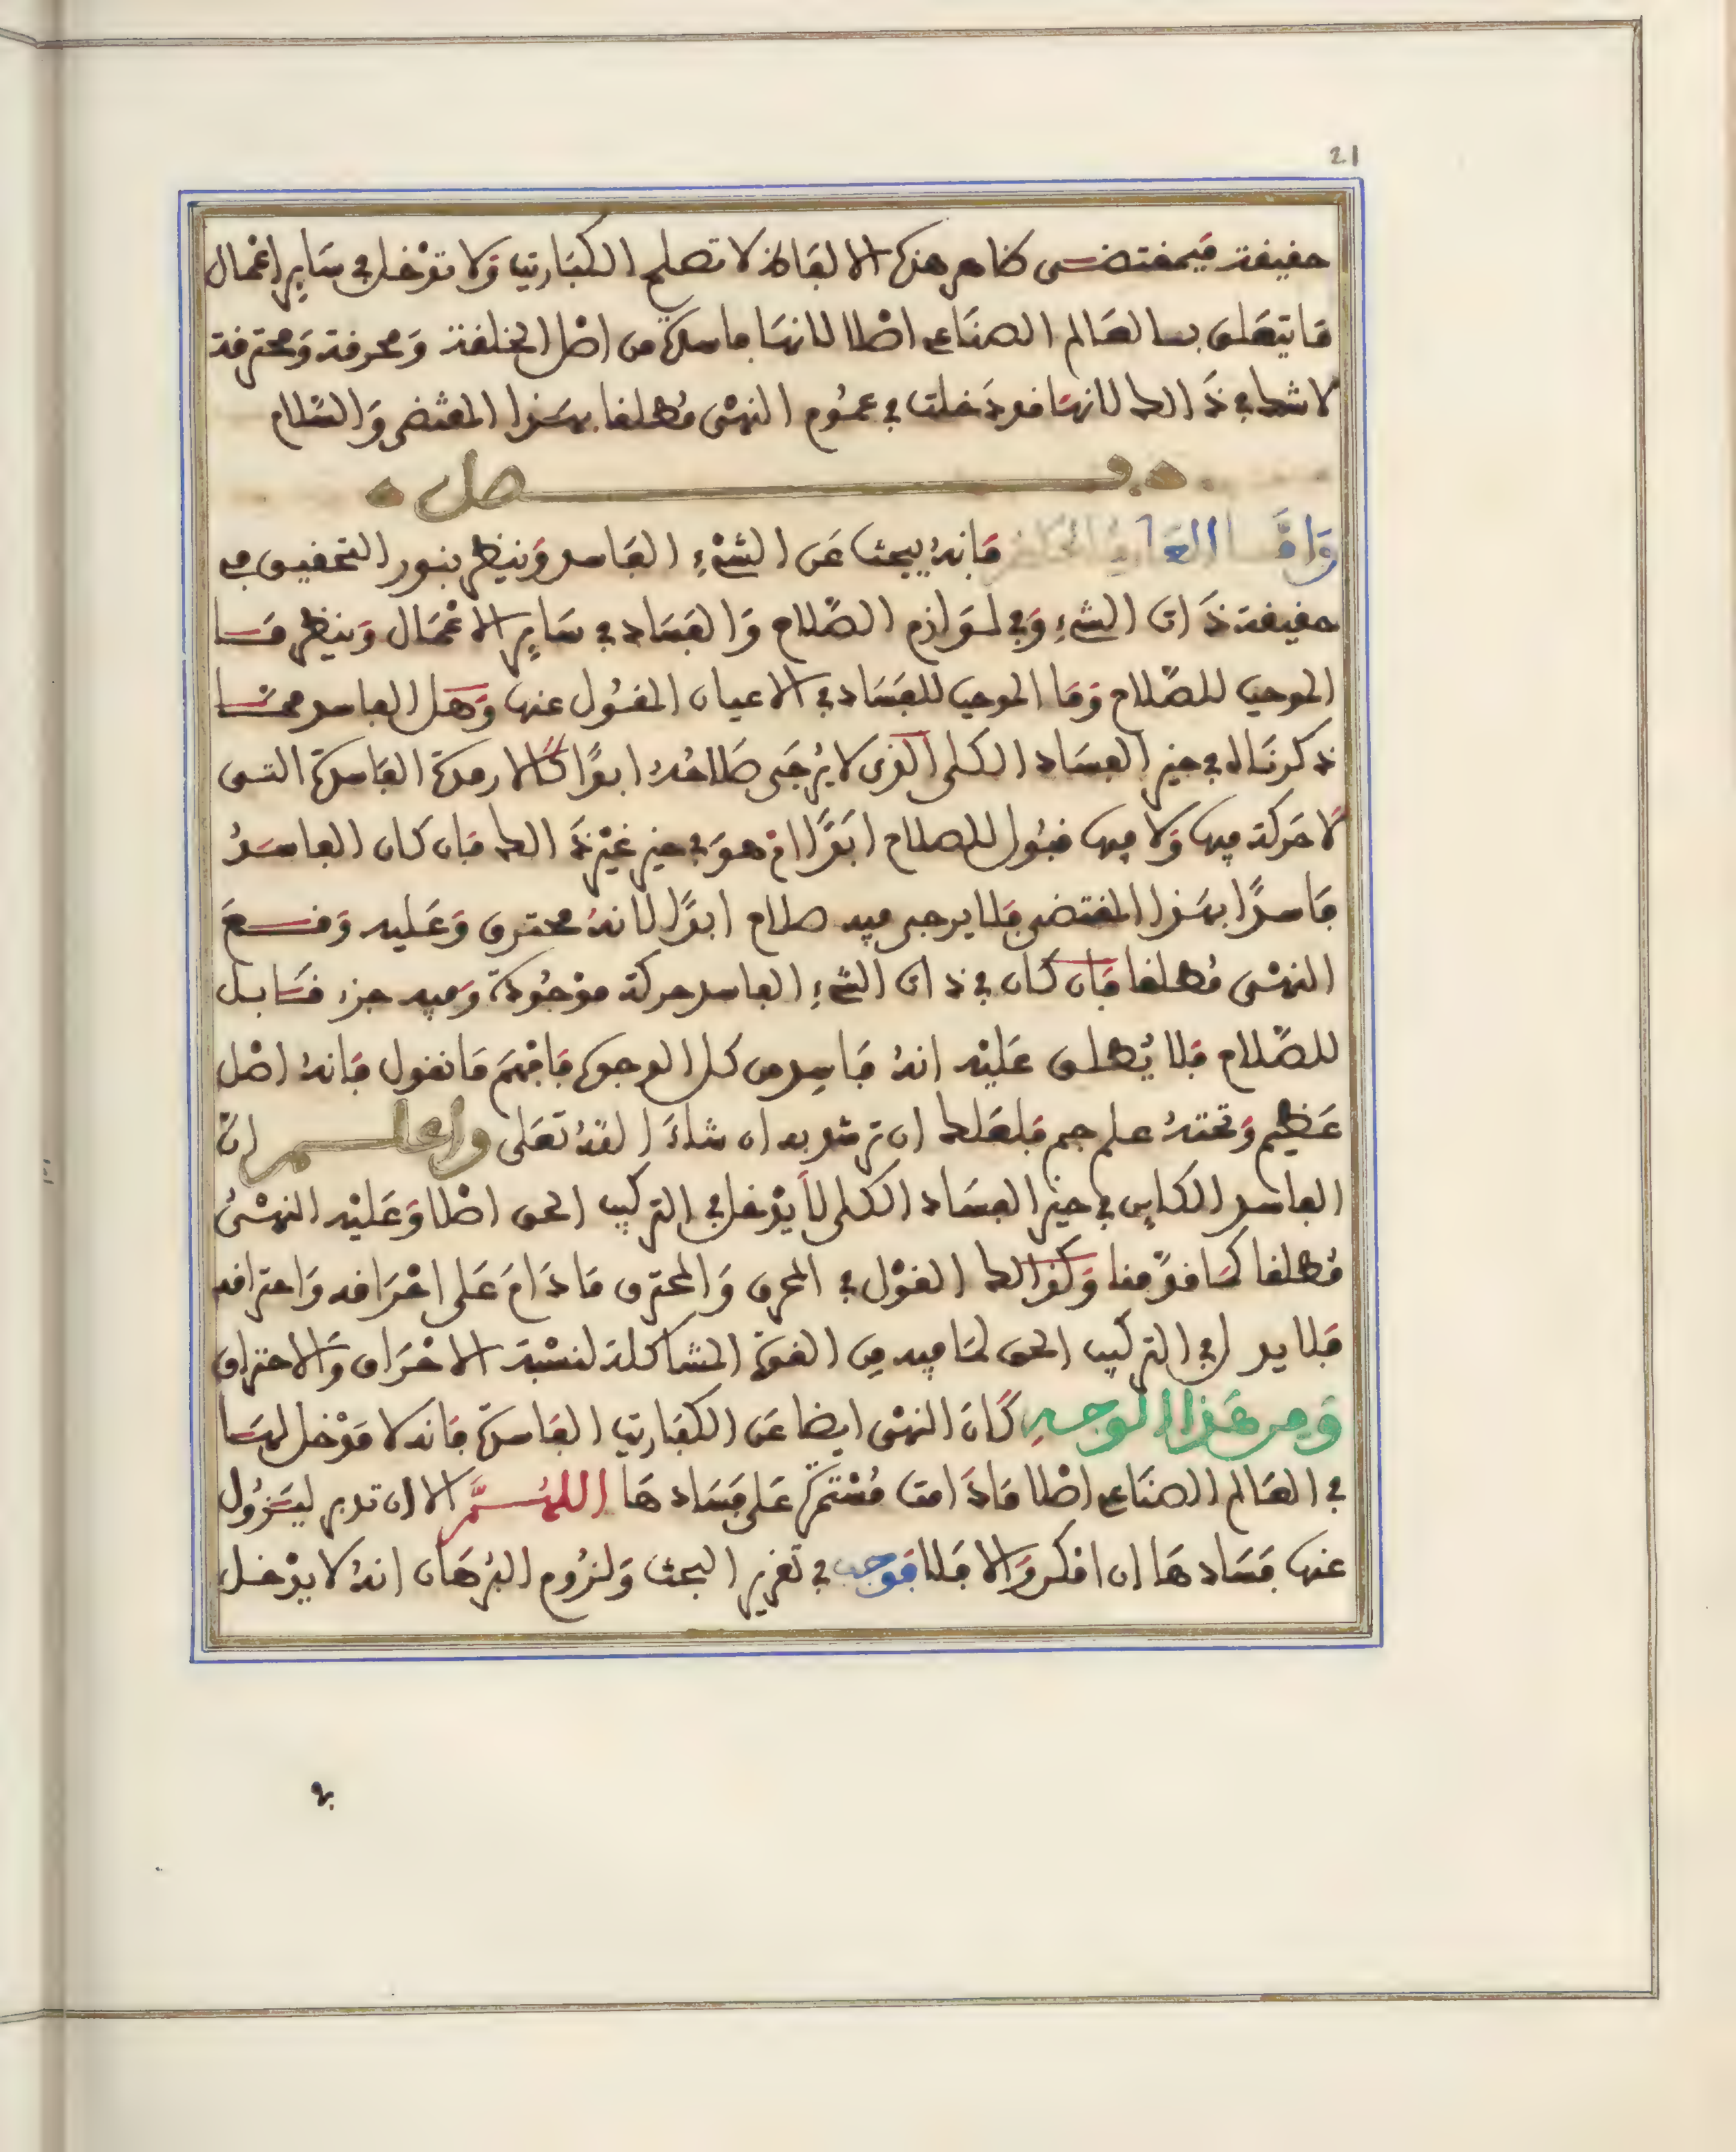 21
حقيقة فبمقتضى ظاهر هذه الالفاظ لا تصلح الكباريت ولا تدخل في ساير اعمال
ما يتعلق بالعالم الصناعي اصلا لانها فاسدة من اصل الخلقة ومحرقة ومحترقة
لا شك في ذالك لانها قد دخلت في عموم النهي مطلقا بهذا المقتضى والسلام
فصل
واما فانه يبحث عن الشيء الفاسد وينظر بنور التحقيق في
حقيقة ذات الشيء وفي لوازم الصلاح والفساد في ساير الاعمال وينظر ما
الموجب للصلاح وما الموجب للفساد في الاعيان المقول عنها وهل الفاسد مما
ذكرناه في حيز الفساد الكلي الذي لا يرجى صلاحه ابدا كالارمدة الفاسدة التي
لا حركة فيها ولا فيها قبول للصلاح ابدا ام هو في حيز غير ذالك فان كان الفاسد
فاسدا بهذا المقتضى فلا يرجى فيه صلاح ابدا لانه محترق وعليه وقع
النهي مطلقا فان كان في ذات الشيء الفاسد حركة موجودة وفيه جزء قابل
للصلاح فلا يطلق عليه انه فاسد من كل الوجوه فافهم ما نقول فانه اصل
عظيم وتحته علم جم فلعلك ان ترشد به ان شاء الله تعلى واعلم ان
الفاسد الكاين في حيز الفساد الكلي لا يدخل في التركيب الحق اصلا وعليه النهي
مطلقا كما قدمنا وكذالك القول في المحرق والمحترق ما دام على احراقه واحتراقه
فلا يد ل في التركيب الحق لما فيه من القوة المشاكلة لنسبة الاحراق والاحتراق
ومن هذا الوجه كان النهي ايضا عن الكباريت الفاسدة فانه لا مدخل لها
في العالم الصناعي اصلا ما دامت مستمرة على فسادها اللهم الا ان تدبر ليزول
عنها فسادها ان امكن والا فلا فوجب في تقرير البحث ولزوم البرهان انه لا يدخل